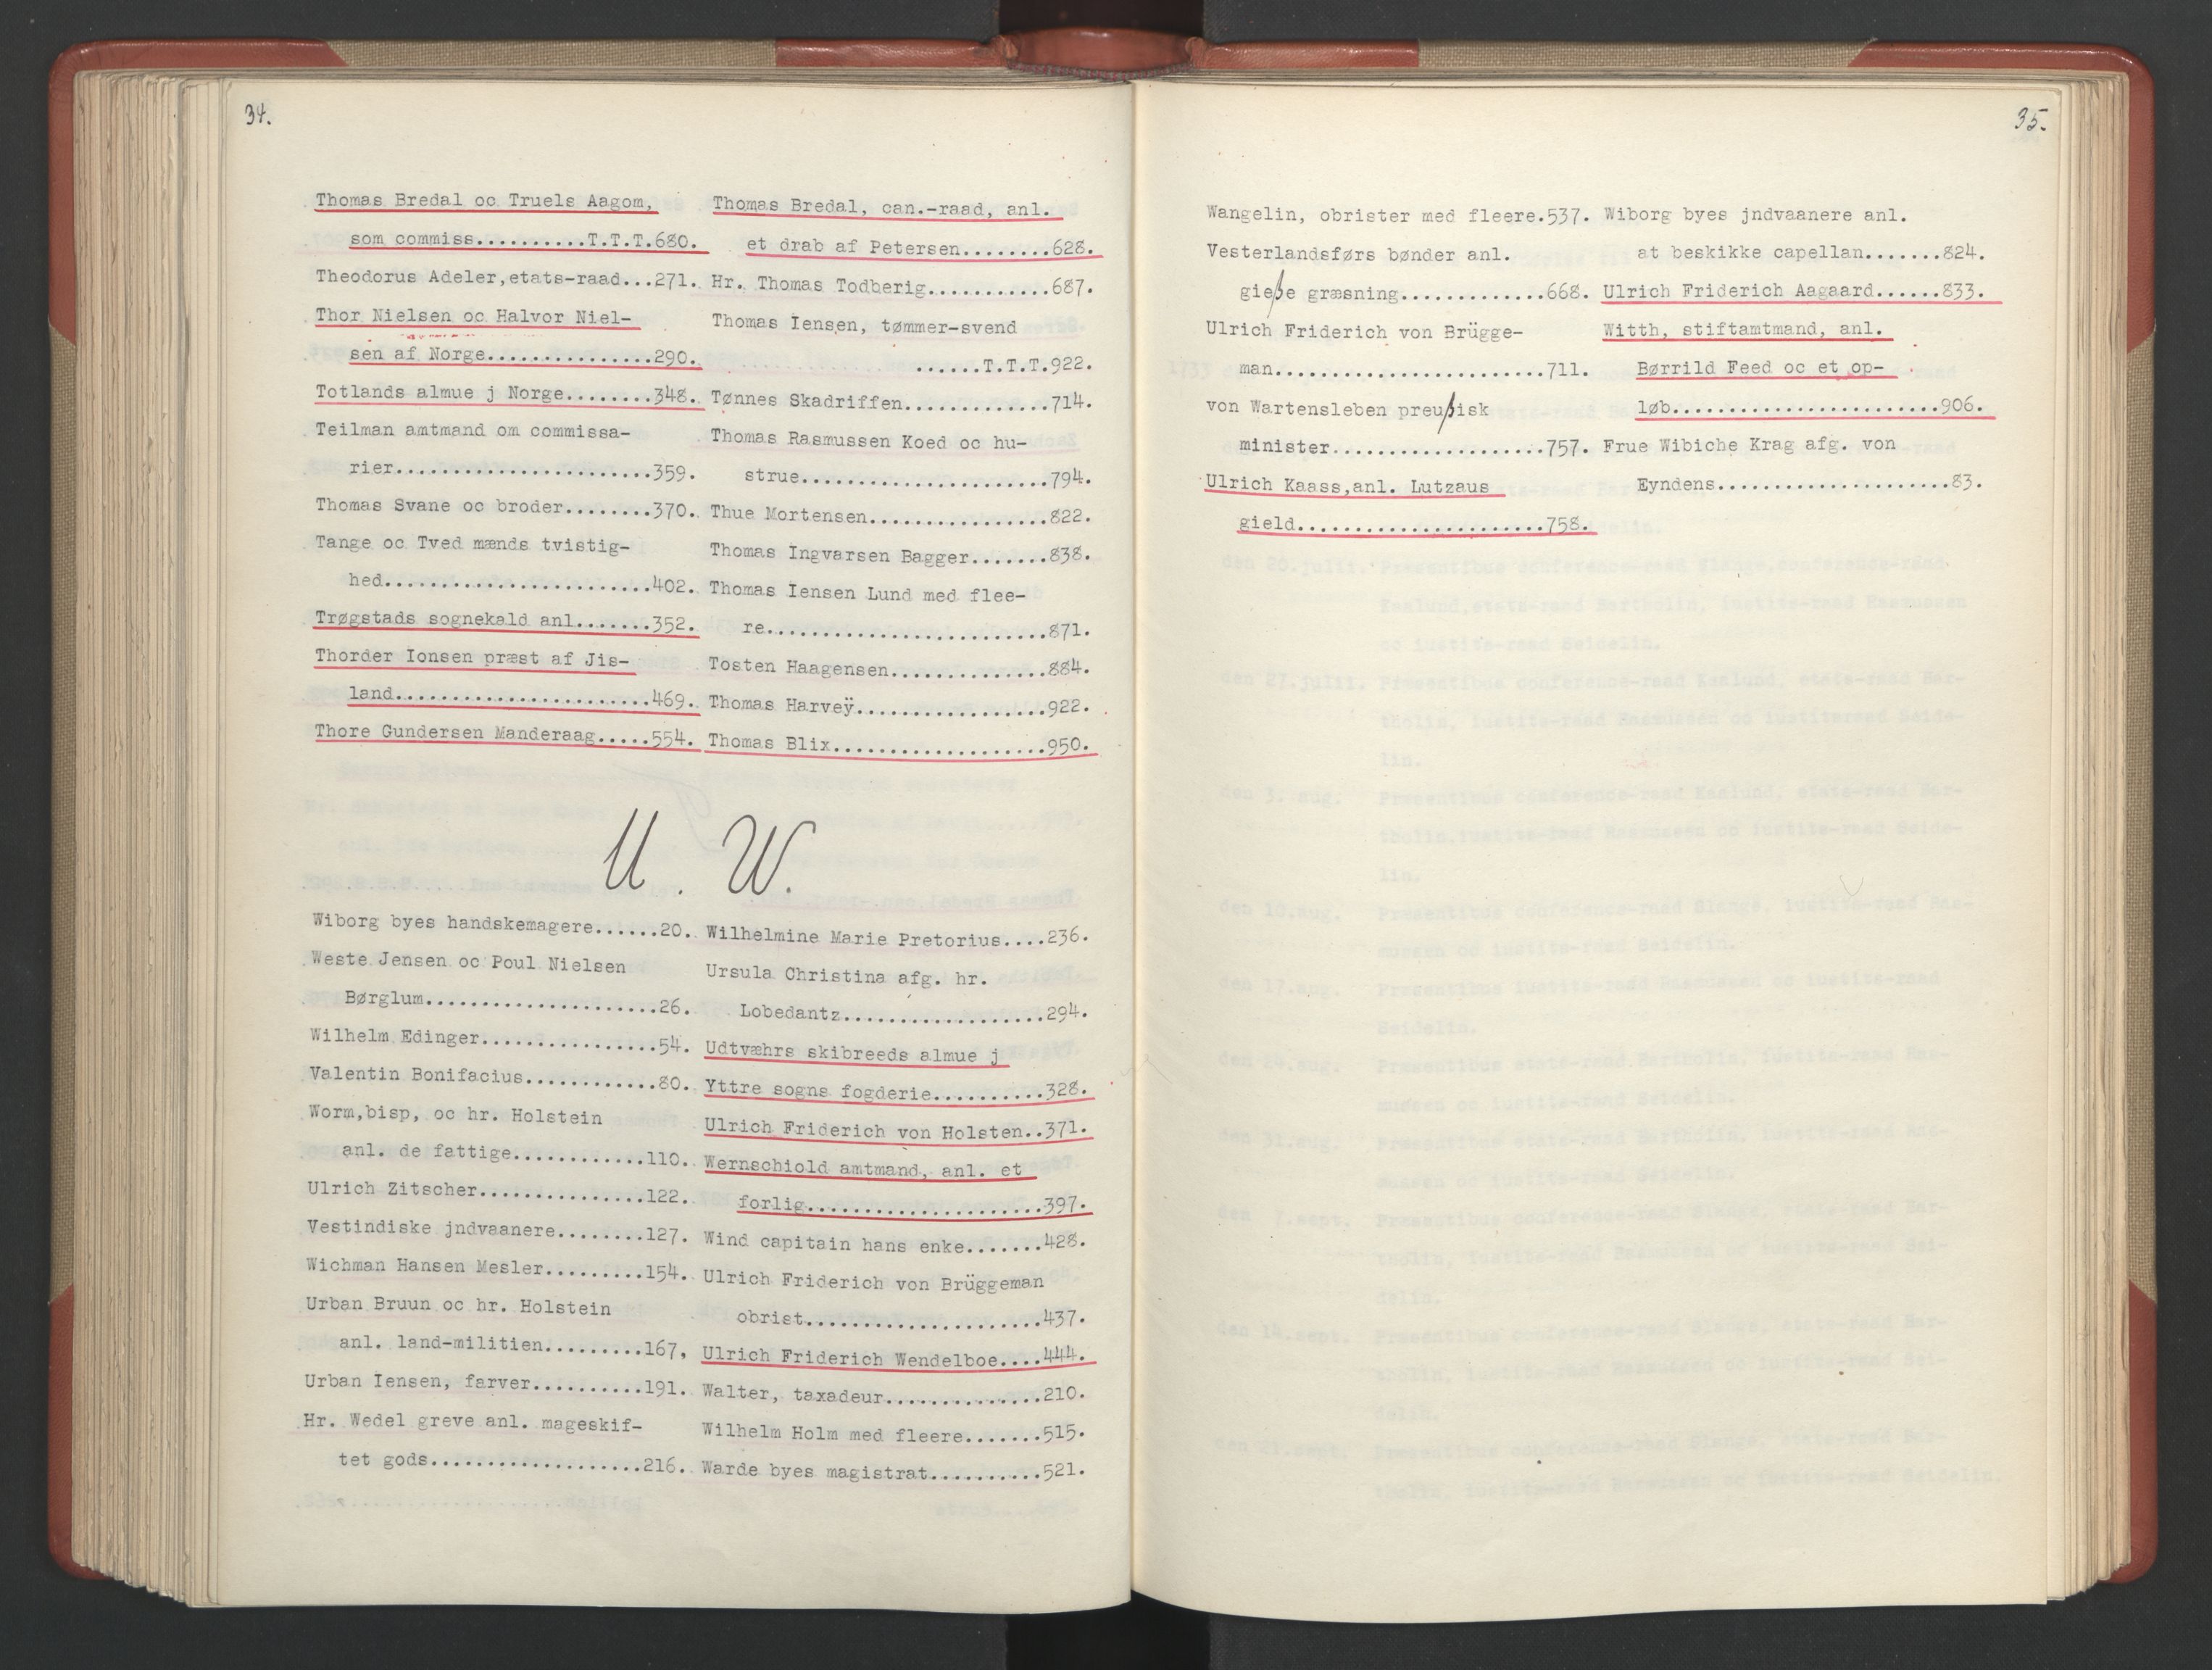 34.
Thomas Bredal oc Truels Aagom,
som commiss..........T.T.T.680.
Theodorus Adeler,etats-raad...271.
Thor Nielsen oc Halvor Niel-
sen af Norge...............290.
Totlands almue j Norge........348.
Teilman amtmand om commissa-
rier.......................359.
Thomas Svane oc broder........370.
Tange oc Tved mænds tvistig-
hed........................402.
Trøgstads sognekald anl.......352.
Thorder Ionsen præst af Jis-
land.......................469.
Thore Gundersen Manderaag.....554.
Thomas Bredal, can.-raad, anl.
et drab af Petersen........628.
Hr. Thomas Todberig...........687.
Thomas Iensen, tømmer-svend
......T.T.T.922.
Tønnes Skadriffen.............714.
Thomas Rasmussen Koed oc hu-
strue......................794.
Thue Mortensen................822.
Thomas Ingvarsen Bagger.......838.
Thomas Iensen Lund med flee-
re.........................871.
Tosten Haagensen..............884.
Thomas Harveÿ.................922.
Thomas Blix...................950.
U. W.
Wiborg byes handskemagere......20.
Weste Jensen oc Poul Nielsen
Børglum.....................26.
Wilhelm Edinger................54.
Valentin Bonifacius............80.
Worm,bisp, oc hr. Holstein
anl. de fattige............110.
Ulrich Zitscher...............122.
Vestindiske jndvaanere........127.
Wichman Hansen Mesler.........154.
Urban Bruun oc hr. Holstein
anl. land-militien.........167,
Urban Iensen, farver..........191.
Hr. Wedel greve anl. mageskif-
tet gods...................216.
Wilhelmine Marie Pretorius....236.
Ursula Christina afg. hr.
Lobedantz..................294.
Udtvæhrs skibreeds almue j
Yttre sogns fogderie..........328.
Ulrich Friderich von Holsten..371.
Wernschiold amtmand, anl. et
forlig.....................397.
Wind capitain hans enke.......428.
Ulrich Friderich von Brüggeman
obrist.....................437.
Ulrich Friderich Wendelboe....444.
Walter, taxadeur..............210.
Wilhelm Holm med fleere.......515.
Warde byes magistrat..........521.
35.
Wangelin, obrister med fleere.537.
Vesterlandsførs bønder anl.
gieße græsning.............668.
Ulrich Friderich von Brügge-
man........................711.
von Wartensleben preußisk
minister...................757.
Ulrich Kaass,anl. Lutzaus
gield......................758.
Wiborg byes jndvaanere anl.
at beskikke capellan.......824.
Ulrich Friderich Aagaard......833.
Witth, stiftamtmand, anl.
Børrild Feed oc et op-
løb........................906.
Frue Wibiche Krag afg. von
Eyndens.....................83.